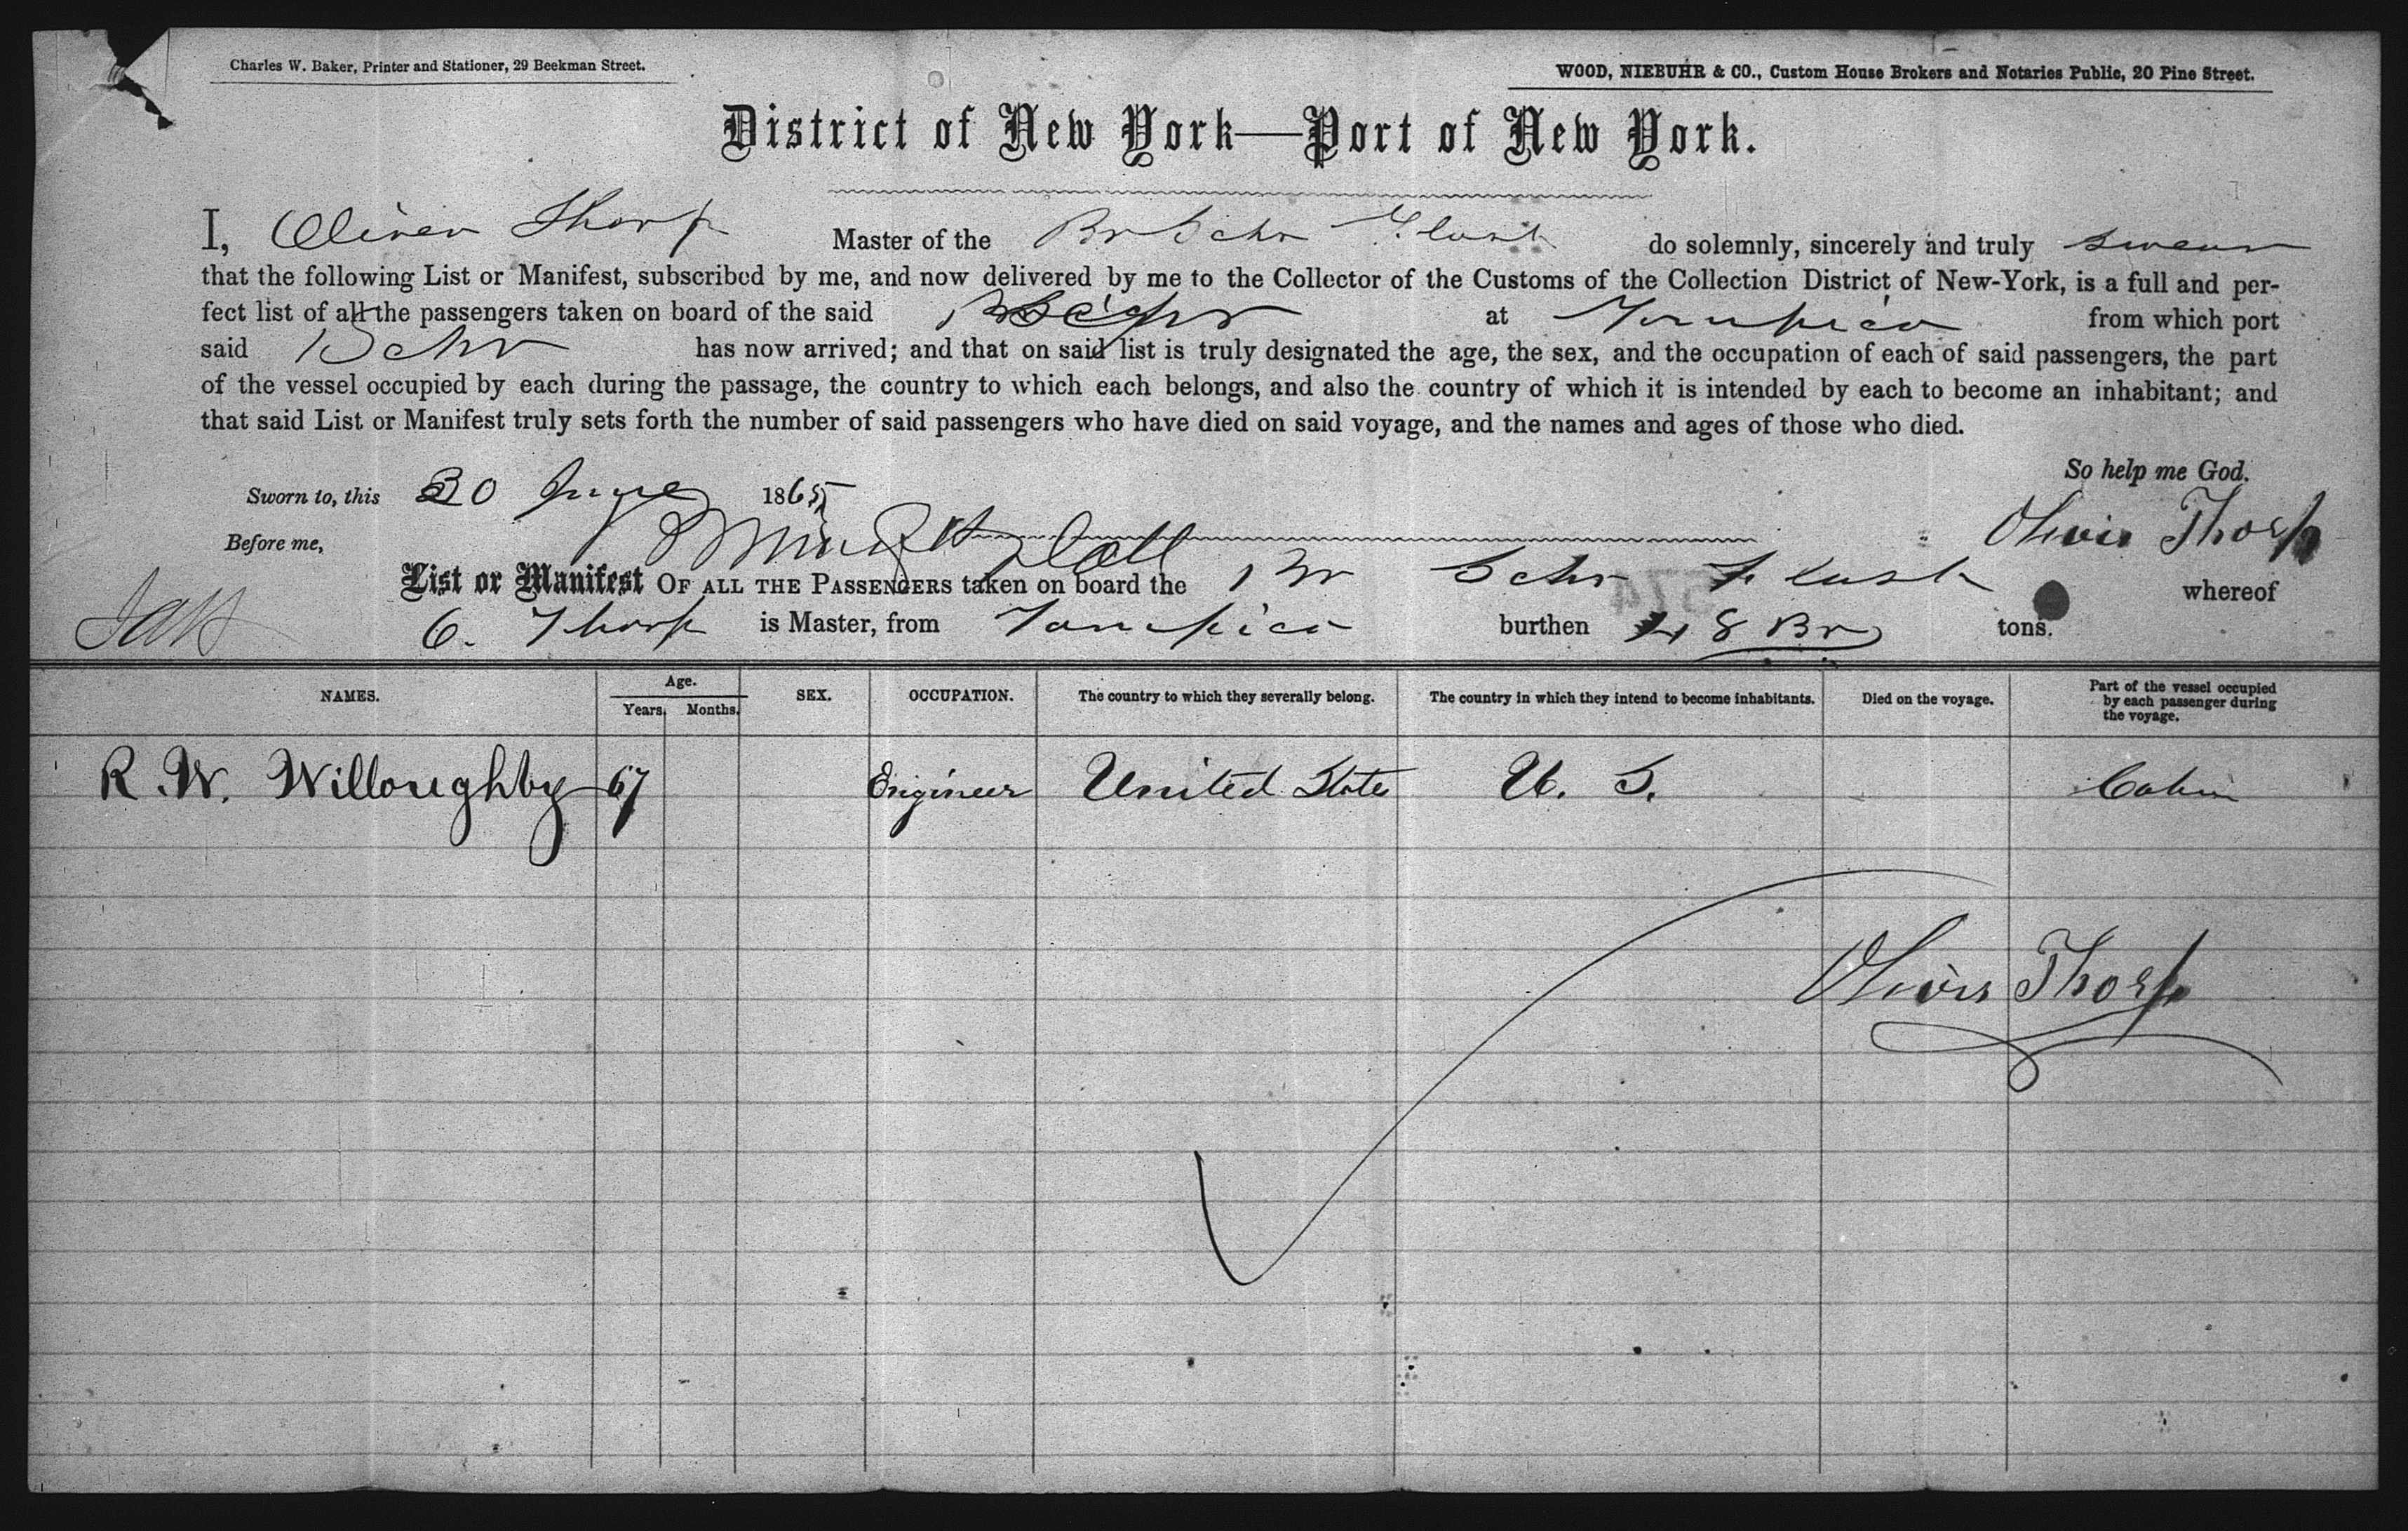 Charles W. Baker, Printer and Stationer, 29 Beekman Street.
WOOD, NIEBUHR & CO., Custom House Brokers and Notaries Public, 20 Pine Street.
District of New York—Port of New York.
I, Oliver Thorp Master of the Br Schr do solemnly, sincerely and truly swear
that the following List or Manifest, subscribed by me, and now delivered by me to the Collector of the Customs of the Collection District of New-York, is a full and per-
fect list of all the passengers taken on board of the said Schr at Tampico from which port
said Schr has now arrived; and that on said list is truly designated the age, the sex, and the occupation of each of said passengers, the part
of the vessel occupied by each during the passage, the country to which each belongs, and also the country of which it is intended by each to become an inhabitant; and
that said List or Manifest truly sets forth the number of said passengers who have died on said voyage, and the names and ages of those who died.
So help me God.
Sworn to, this 30 June 1865
Oliver Thorp
Before me,
List or Manifest OF ALL THE PASSENGERS taken on board the Br Schr whereof
O. Thorp is Master, from Tampico burthen tons.
NAMES. Age. Years. Months. SEX. OCCUPATION. The country to which they severally belong. The country in which they intend to become inhabitants. Died on the voyage. Part of the vessel occupied by each passenger during the voyage.
R. W. Willoughby 67 Engineer United States U. S. Cabin
Oliver Thorp